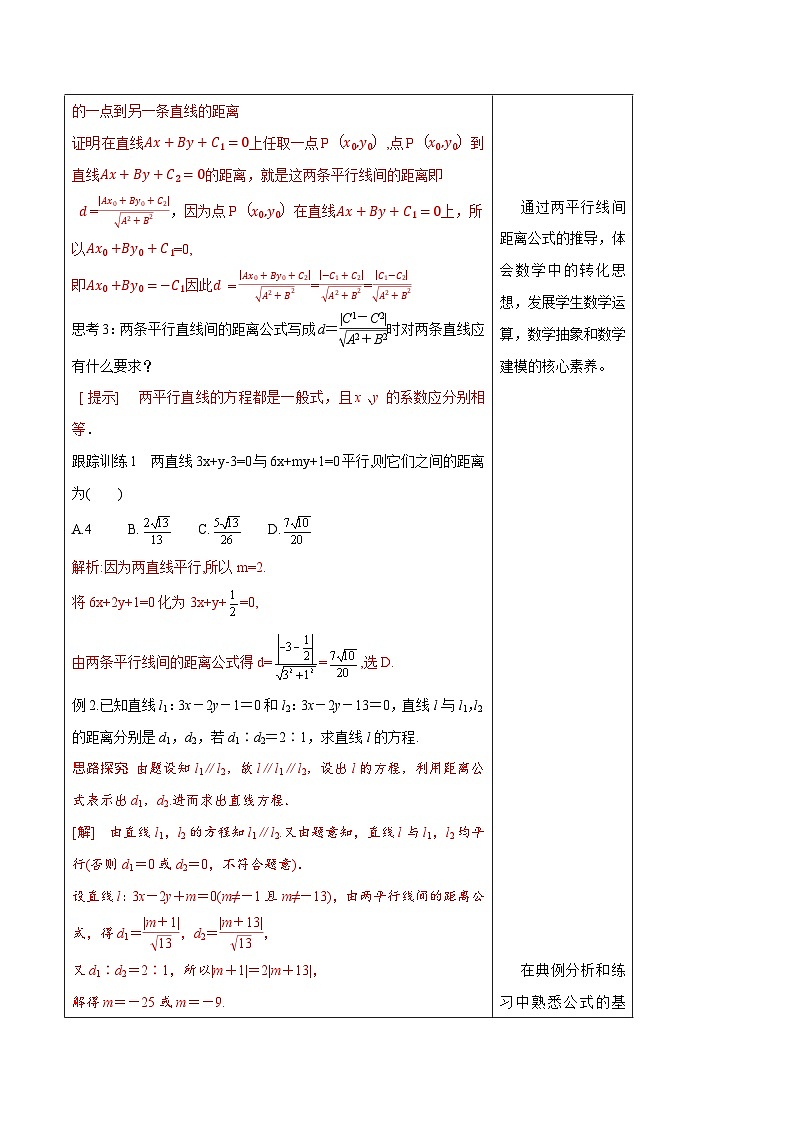 的一点到另一条直线的距离
证明:在直线Ax+By+C₁=0上任取一点P（x₀,y₀）,点P（x₀,y₀）到
直线Ax+By+C₂=0的距离，就是这两条平行线间的距离即
d=|Ax₀+By₀+C₂|/√(A²+B²)，因为点P（x₀,y₀）在直线Ax+By+C₁=0上，所
以Ax₀+By₀+C₁=0,
即Ax₀+By₀=−C₁因此d =|Ax₀+By₀+C₂|/√(A²+B²)=|−C₁+C₂|/√(A²+B²)=|C₁−C₂|/√(A²+B²)
思考3:两条平行直线间的距离公式写成d=|C1－C2|/√(A²＋B²)时对两条直线应
有什么要求？
[提示] 两平行直线的方程都是一般式，且x、y 的系数应分别相
等．
跟踪训练1 两直线3x+y-3=0与6x+my+1=0平行,则它们之间的距离
为( )
A.4 B.2√13/13 C.5√13/26 D.7√10/20
解析:因为两直线平行,所以m=2.
将6x+2y+1=0化为3x+y+1/2=0,
由两条平行线间的距离公式得d=|−3−1/2|/√(3²+1²)=7√10/20,选D.
例2.已知直线l₁：3x－2y－1＝0和l₂：3x－2y－13＝0，直线l与l₁，l₂
的距离分别是d₁，d₂，若d₁∶d₂＝2∶1，求直线l的方程.
思路探究 由题设知l₁∥l₂，故l∥l₁∥l₂，设出l的方程，利用距离公
式表示出d₁，d₂.进而求出直线方程．
[解] 由直线l₁，l₂的方程知l₁∥l₂.又由题意知，直线l与l₁，l₂均平
行(否则d₁＝0或d₂＝0，不符合题意)．
设直线l：3x－2y＋m＝0(m≠－1且m≠－13)，由两平行线间的距离公
式，得d₁＝|m＋1|/√13，d₂＝|m＋13|/√13，
又d₁∶d₂＝2∶1，所以|m＋1|＝2|m＋13|，
解得m＝－25或m＝－9.
通过两平行线间
距离公式的推导，体
会数学中的转化思
想，发展学生数学运
算，数学抽象和数学
建模的核心素养。
在典例分析和练
习中熟悉公式的基